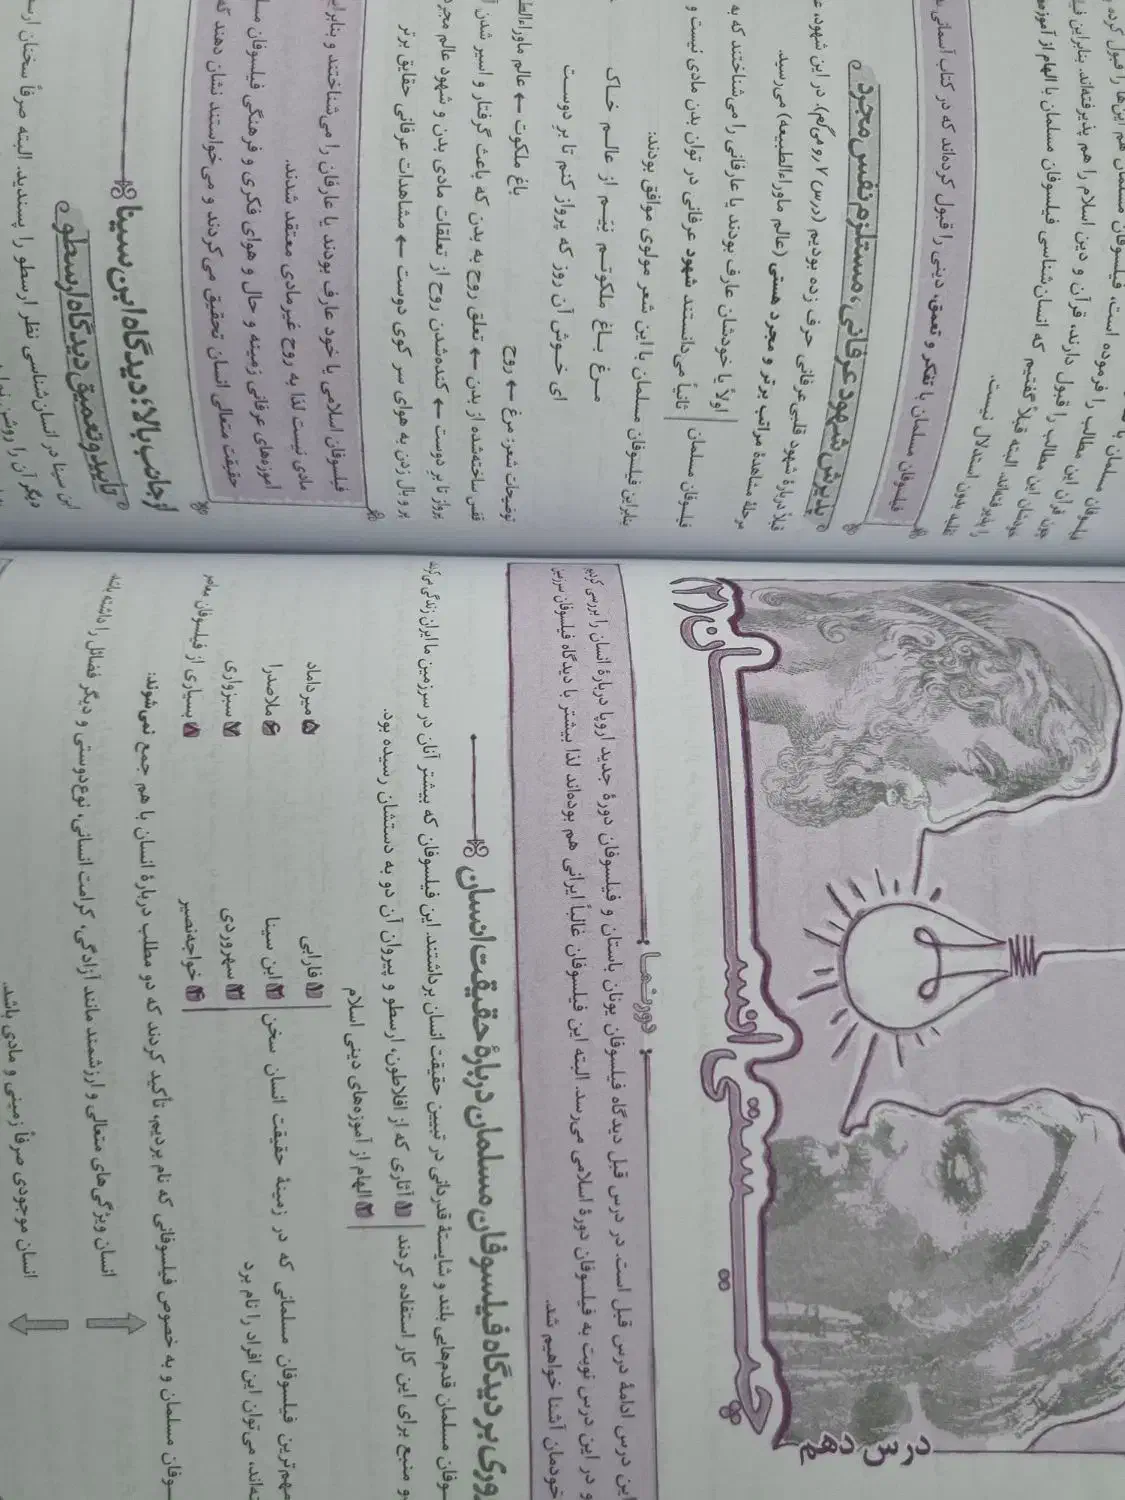 درس دهم
چیستی انسان (۲)
دورنما
این درس ادامهٔ درس قبل است. در درس قبل دیدگاه فیلسوفان یونان باستان و فیلسوفان دورهٔ جدید اروپا دربارهٔ انسان را بررسی کردیم
و در این درس نوبت به فیلسوفان دورهٔ اسلامی می‌رسد. البته این فیلسوفان غالباً ایرانی هم بوده‌اند لذا بیشتر با دیدگاه فیلسوفان سرزمین
خودمان آشنا خواهیم شد.
بر دیدگاه فیلسوفان مسلمان دربارهٔ حقیقت انسان
مسلمان قدم‌هایی بلند و شایستهٔ قدردانی در تبیین حقیقت انسان برداشتند. این فیلسوفان که بیشتر آنان در سرزمین ما ایران زندگی می‌کردند
و منبع برای این کار استفاده کردند
۱ آثاری که از افلاطون، ارسطو و پیروان آن دو به دستشان رسیده بود.
۲ الهام از آموزه‌های دینی اسلام
مهم‌ترین فیلسوفان مسلمانی که در زمینهٔ حقیقت انسان سخن
می‌توان این افراد را نام برد
۱ فارابی
۲ ابن سینا
۳ سهروردی
۴ خواجه‌نصیر
۵ میرداماد
۶ ملاصدرا
۷ سبزواری
۸ بسیاری از فیلسوفان معاصر
مسلمان و به خصوص فیلسوفانی که نام بردیم، تأکید کردند که دو مطلب دربارهٔ انسان با هم جمع نمی‌شوند:
انسان ویژگی‌های متعالی و ارزشمند مانند آزادگی، کرامت انسانی، نوع‌دوستی و دیگر فضائل را داشته باشد.
انسان موجودی صرفاً زمینی و مادی باشد.
فیلسوفان مسلمان با
چون قرآن این مطالب را فرموده است، فیلسوفان مسلمان هم این‌ها را قبول کرده
این مطالب را قبول دارند، قرآن و دین اسلام را هم پذیرفته‌اند. بنابراین
را پذیرفته‌اند. البته قبلاً گفتیم که انسان‌شناسی فیلسوفان مسلمان با الهام از
بدون استدلال نیست.
فیلسوفان مسلمان با تفکر و تعمق، دینی را قبول کرده‌اند که در کتاب آسمانی
پذیرش شهود عرفانی، مستلزم نفس مجرد
قبلاً دربارهٔ شهود قلبی‌عرفانی حرف زده بودیم (درس ۷ رو می‌گم). در این شهود،
مرحلهٔ مشاهدهٔ مراتب برتر و مجرد هستی (عالم ماوراءالطبیعه) می‌رسید.
فیلسوفان مسلمان
اولاً یا خودشان عارف بودند یا عارفانی را می‌شناختند که به
ثانیاً می‌دانستند شهود عرفانی در توان بدن مادی نیست و
بنابراین فیلسوفان مسلمان با این شعر مولوی موافق بودند:
مرغ باغ ملکوتم نیَم از عالم خاک
ای خوش آن روز که پرواز کنم تا بر دوست
توضیحات شعر: مرغ ← روح
باغ ملکوت ← عالم ماوراءالط
قفس ساخته‌شده از بدن ← تعلق روح به بدن که باعث گرفتار و اسیر شدن
پرواز تا بر دوست ← کنده‌شدن روح از تعلقات مادی بدن و شهود عالم مجرد
پر و بال زدن به هوای سر کوی دوست ← مشاهدات عرفانی حقایق برتر
فیلسوفان اسلامی یا خود عارف بودند یا عارفان را می‌شناختند و بنابراین
مادی نیست لذا به روح غیرمادی معتقد شدند.
آموزه‌های عرفانی زمینه و حال و هوای فکری و فرهنگی فیلسوفان
حقیقت متعالی انسان تحقیق می‌کردند و می‌خواستند نشان دهند که
از جانب بالا؛ دیدگاه ابن سینا
تأیید و تعمیق دیدگاه ارسطو
ابن سینا در انسان‌شناسی نظر ارسطو را پسندید. البته صرفاً سخنان
دیگر آن را روشن